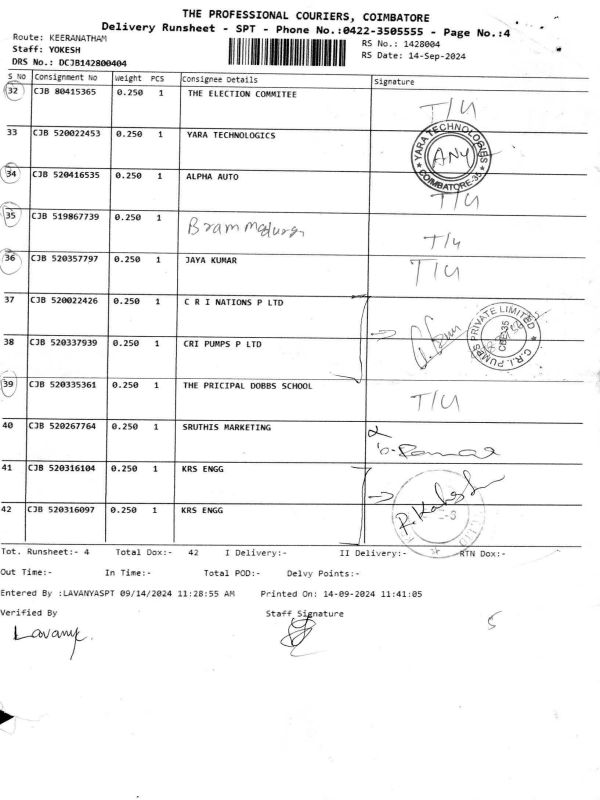 THE PROFESSIONAL COURIERS, COIMBATORE
Delivery Runsheet - SPT - Phone No.:0422-3505555 - Page No.:4
Route: KEERANATHAM
RS No.: 1428004
Staff: YOKESH
RS Date: 14-Sep-2024
DRS No.: DCJB142800404
S No Consignment No Weight PCS Consignee Details Signature
32 CJB 80415365 0.250 1 THE ELECTION COMMITEE T/U
33 CJB 520022453 0.250 1 YARA TECHNOLOGICS
YARA TECHNOLOGIES
ANY
COIMBATORE-35
34 CJB 520416535 0.250 1 ALPHA AUTO T/U
35 CJB 519867739 0.250 1 T/U
36 CJB 520357797 0.250 1 JAYA KUMAR T/U
37 CJB 520022426 0.250 1 C R I NATIONS P LTD
C.R.I. PUMPS PRIVATE LIMITED
CBE-35
38 CJB 520337939 0.250 1 CRI PUMPS P LTD
39 CJB 520335361 0.250 1 THE PRICIPAL DOBBS SCHOOL T/U
40 CJB 520267764 0.250 1 SRUTHIS MARKETING
41 CJB 520316104 0.250 1 KRS ENGG
42 CJB 520316097 0.250 1 KRS ENGG
Tot. Runsheet:- 4 Total Dox:- 42 I Delivery:- II Delivery:- RTN Dox:-
Out Time:- In Time:- Total POD:- Delvy Points:-
Entered By :LAVANYASPT 09/14/2024 11:28:55 AM Printed On: 14-09-2024 11:41:05
Verified By Staff Signature
5